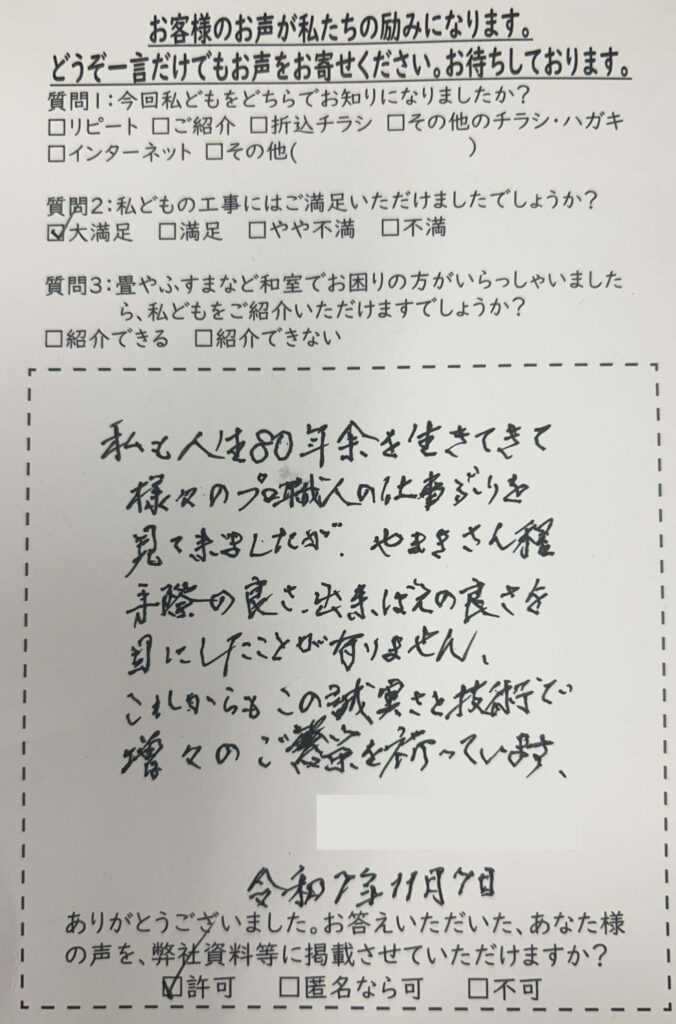 お客様のお声が私たちの励みになります。
どうぞ一言だけでもお声をお寄せください。お待ちしております。
質問1：今回私どもをどちらでお知りになりましたか？
□リピート □ご紹介 □折込チラシ □その他のチラシ・ハガキ
□インターネット □その他(　　　　　　　)
質問2：私どもの工事にはご満足いただけましたでしょうか？
☑大満足 □満足 □やや不満 □不満
質問3：畳やふすまなど和室でお困りの方がいらっしゃいました
ら、私どもをご紹介いただけますでしょうか？
□紹介できる □紹介できない
私も人生80年余を生きてきて
様々のプロ職人の仕事ぶりを
見て来ましたが、やまきさん程
手際の良さ、出来ばえの良さを
目にしたことが有りません、
これからもこの誠実さと技術で
増々のご繁栄を祈っています、
令和7年11月7日
ありがとうございました。お答えいただいた、あなた様
の声を、弊社資料等に掲載させていただけますか？
☑許可 □匿名なら可 □不可